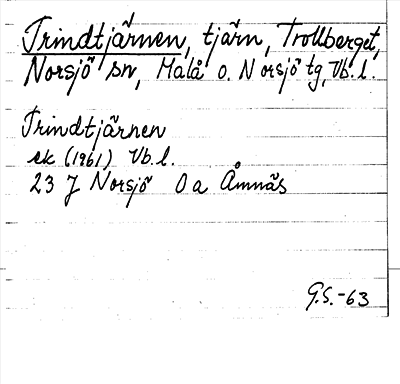 Trindtjärnen, tjärn, Trollberget,
Norsjö sn, Malå o. Norsjö tg, Vb.l.
Trindtjärnen
ek (1961) Vb.l.
23 J Norsjö 0a Åmnäs
G.S.-63